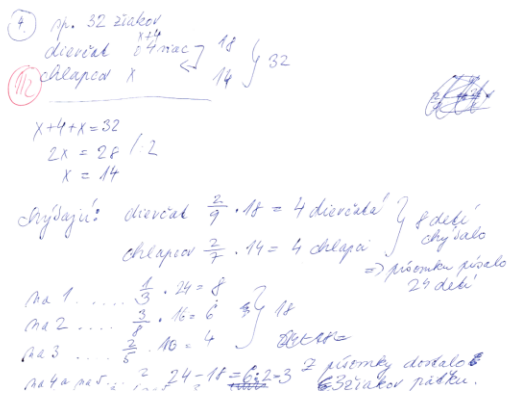 4. sp. 32 žiakov
x+4
dievčat o 4 viac 18
chlapcov x 14 } 32
x+4+x=32
2x = 28 /:2
x = 14
chýbajú: dievčat 2/9 · 18 = 4 dievčatá
chlapcov 2/7 · 14 = 4 chlapci } 8 detí chýbalo
=> písomku písalo 24 detí
na 1 ..... 1/3 · 24 = 8
na 2 .... 3/8 · 16 = 6 } 18
na 3 .... 2/5 · 10 = 4
na 4 a na 5 ... 24 - 18 = 6:2=3 Z písomky dostalo
3 žiakov pätku.